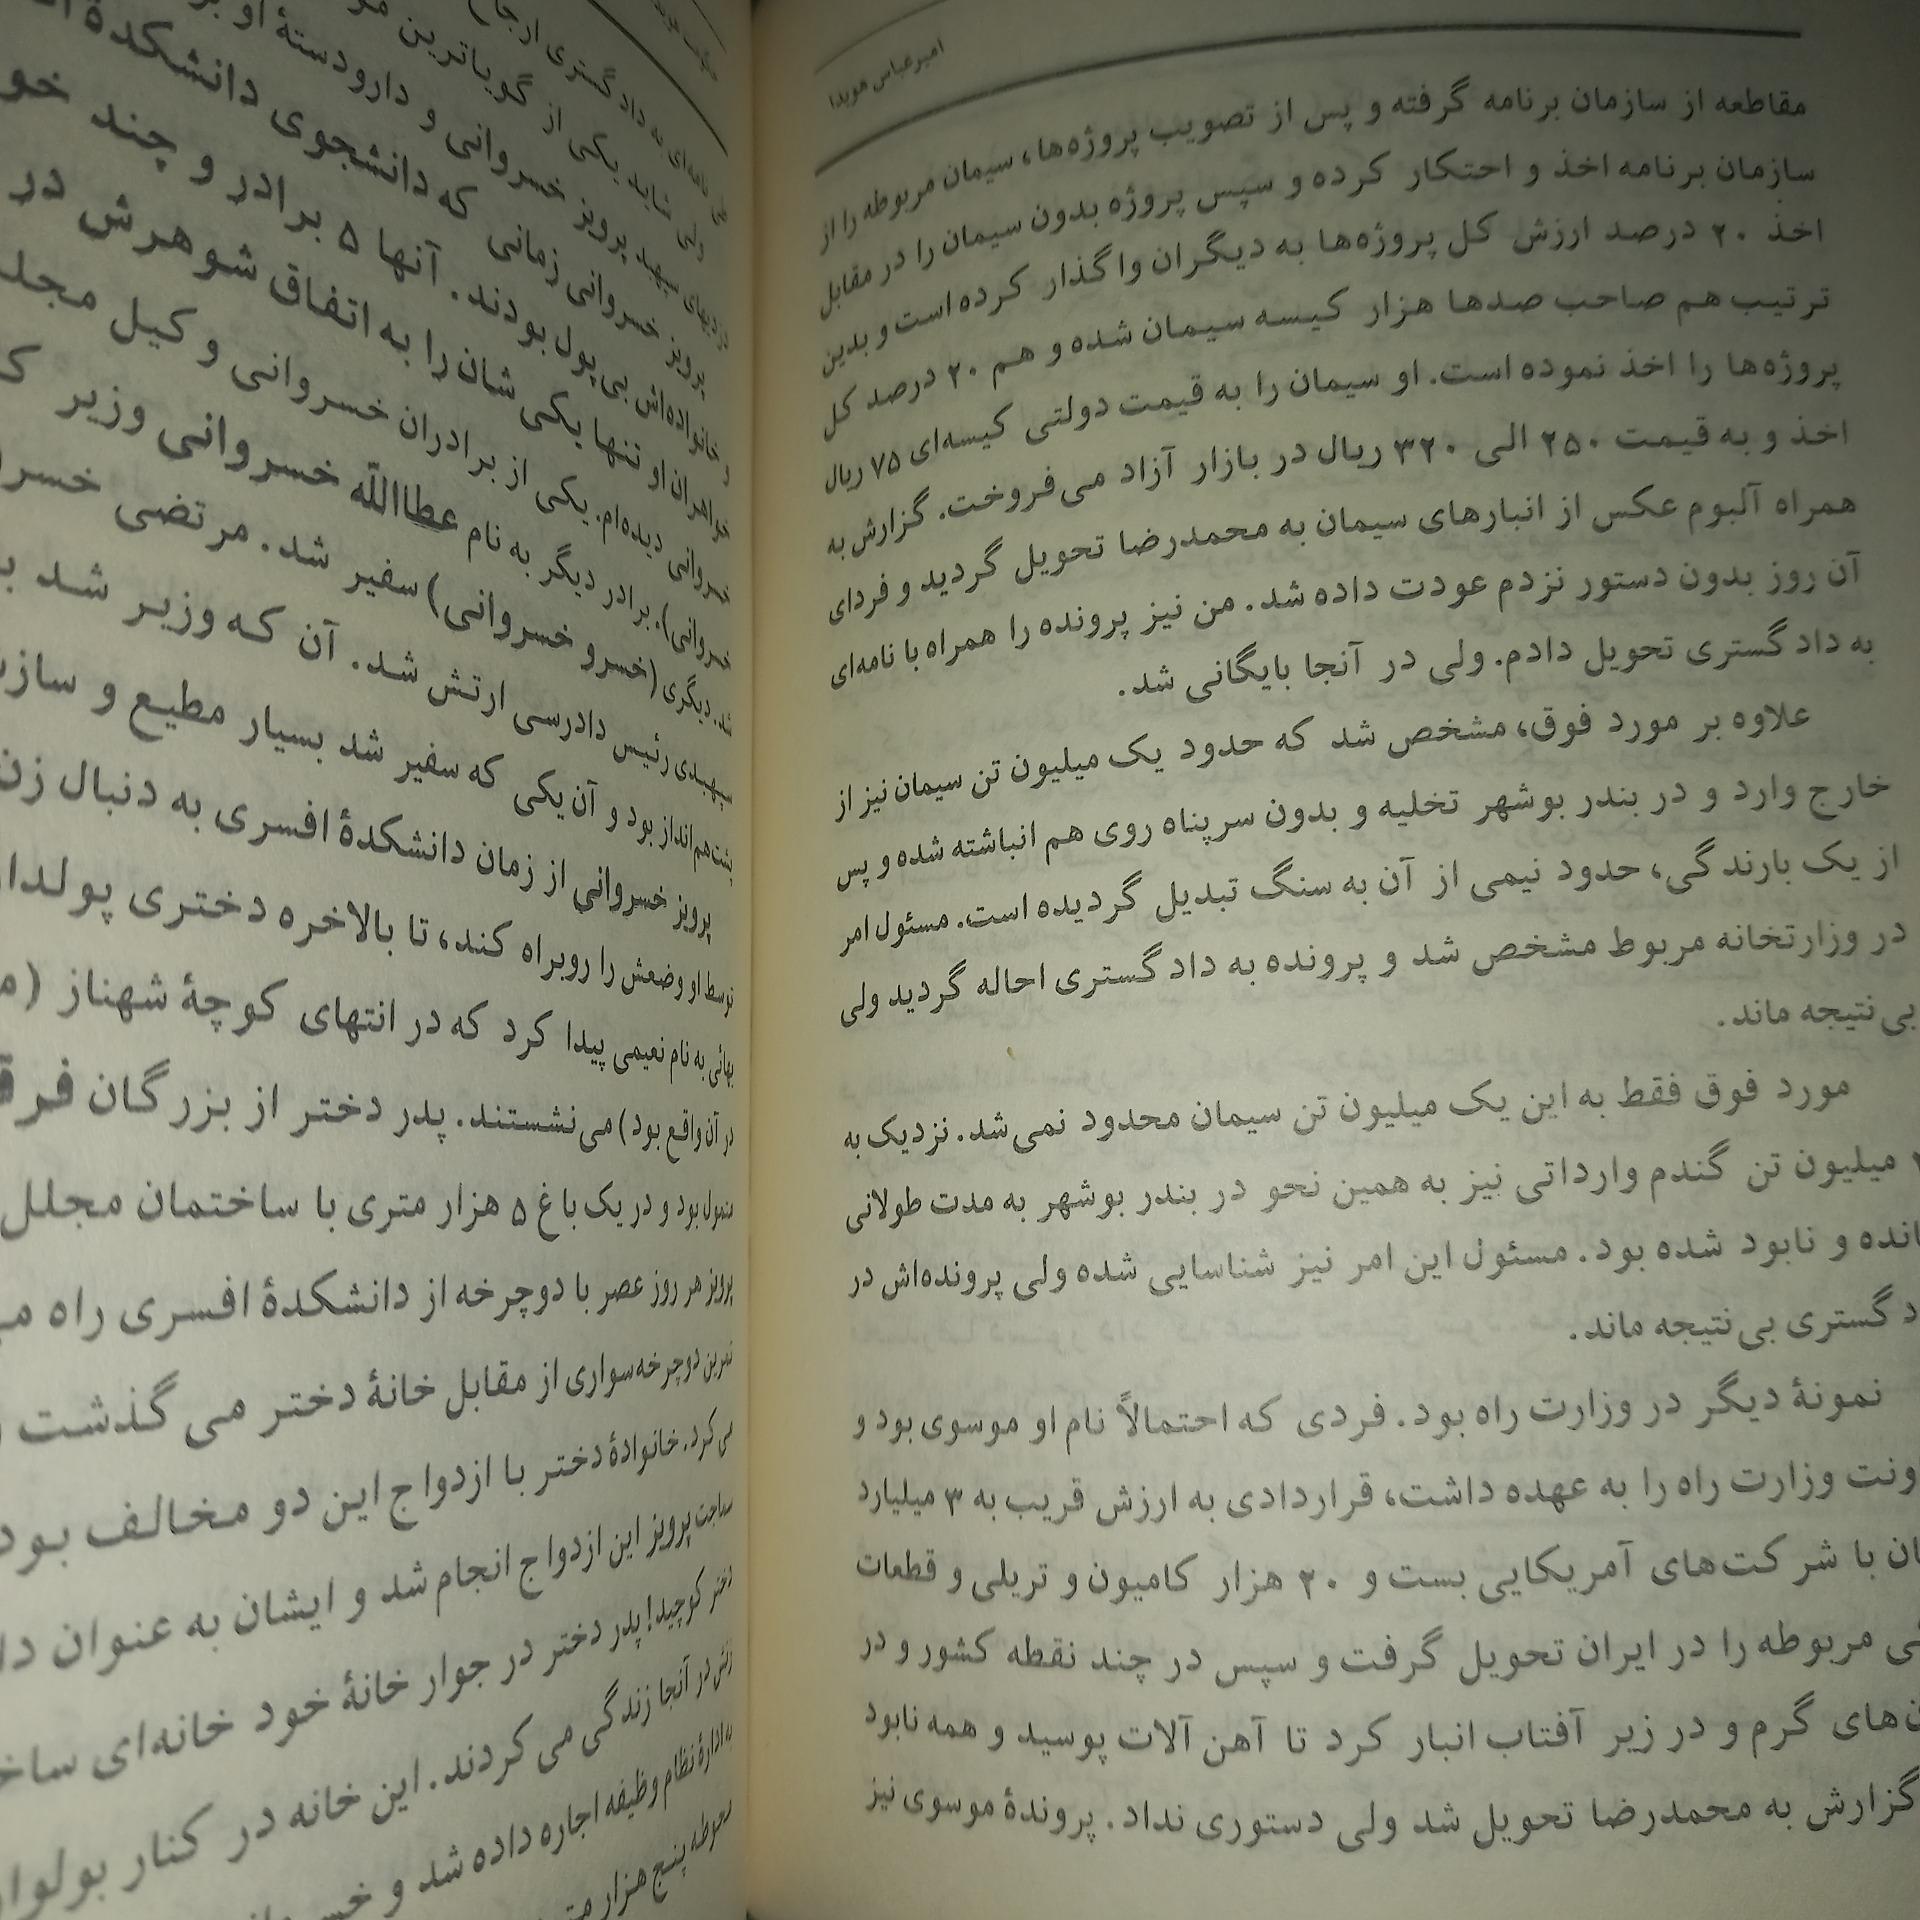 امیرعباس هویدا
مقاطعه از سازمان برنامه گرفته و پس از تصویب پروژه‌ها، سیمان مربوطه را از
سازمان برنامه اخذ و احتکار کرده و سپس پروژه بدون سیمان را در مقابل
اخذ ۲۰ درصد ارزش کل پروژه‌ها به دیگران واگذار کرده است و بدین
ترتیب هم صاحب صدها هزار کیسه سیمان شده و هم ۲۰ درصد کل
پروژه‌ها را اخذ نموده است. او سیمان را به قیمت دولتی کیسه‌ای ۷۵ ریال
اخذ و به قیمت ۲۵۰ الی ۳۲۰ ریال در بازار آزاد می‌فروخت. گزارش به
همراه آلبوم عکس از انبارهای سیمان به محمدرضا تحویل گردید و فردای
آن روز بدون دستور نزدم عودت داده شد. من نیز پرونده را همراه با نامه‌ای
به دادگستری تحویل دادم. ولی در آنجا بایگانی شد.
علاوه بر مورد فوق، مشخص شد که حدود یک میلیون تن سیمان نیز از
خارج وارد و در بندر بوشهر تخلیه و بدون سرپناه روی هم انباشته شده و پس
از یک بارندگی، حدود نیمی از آن به سنگ تبدیل گردیده است. مسئول امر
در وزارتخانه مربوط مشخص شد و پرونده به دادگستری احاله گردید ولی
بی‌نتیجه ماند.
مورد فوق فقط به این یک میلیون تن سیمان محدود نمی‌شد. نزدیک به
میلیون تن گندم وارداتی نیز به همین نحو در بندر بوشهر به مدت طولانی
انده و نابود شده بود. مسئول این امر نیز شناسایی شده ولی پرونده‌اش در
د گستری بی‌نتیجه ماند.
نمونهٔ دیگر در وزارت راه بود. فردی که احتمالاً نام او موسوی بود و
ونت وزارت راه را به عهده داشت، قراردادی به ارزش قریب به ۳ میلیارد
ان با شرکت‌های آمریکایی بست و ۲۰ هزار کامیون و تریلی و قطعات
ی مربوطه را در ایران تحویل گرفت و سپس در چند نقطه کشور و در
ن‌های گرم و در زیر آفتاب انبار کرد تا آهن آلات پوسید و همه نابود
گزارش به محمدرضا تحویل شد ولی دستوری نداد. پروندهٔ موسوی نیز
طی نامه‌ای به دادگستری ارجاع
ولی شاید یکی از گویاترین
دزدیهای سپهبد پرویز خسروانی و دارودستهٔ او
پرویز خسروانی زمانی که دانشجوی دانشکدهٔ
و خانواده‌اش بی‌پول بودند. آنها ۵ برادر و چند
خواهران او تنها یکی شان را به اتفاق شوهرش در
خسروانی دیده‌ام. یکی از برادران خسروانی وکیل
خسروانی). برادر دیگر به نام عطاالله خسروانی وزیر
شد. دیگری (خسرو خسروانی) سفیر شد. مرتضی
سپهبدی رئیس دادرسی ارتش شد. آن که وزیر شد
پشت‌هم‌انداز بود و آن یکی که سفیر شد بسیار مطیع و
پرویز خسروانی از زمان دانشکدهٔ افسری به دنبال
توسط او وضعش را روبراه کند، تا بالاخره دختری
بهائی به نام نعیمی پیدا کرد که در انتهای کوچهٔ شهناز
در آن واقع بود) می‌نشستند. پدر دختر از بزرگان
متمول بود و در یک باغ ۵ هزار متری با ساختمان مجلل
پرویز هر روز عصر با دوچرخه از دانشکدهٔ افسری راه
تمرین دوچرخه‌سواری از مقابل خانهٔ دختر می گذشت
می‌کرد. خانوادهٔ دختر با ازدواج این دو مخالف بود
سماجت پرویز این ازدواج انجام شد و ایشان به عنوان
دختر کوچید! پدر دختر در جوار خانهٔ خود خانه‌ای
زنش در آنجا زندگی می کردند. این خانه در کنار
به ادارهٔ نظام وظیفه اجاره داده شد و
محوطه پنج هزار